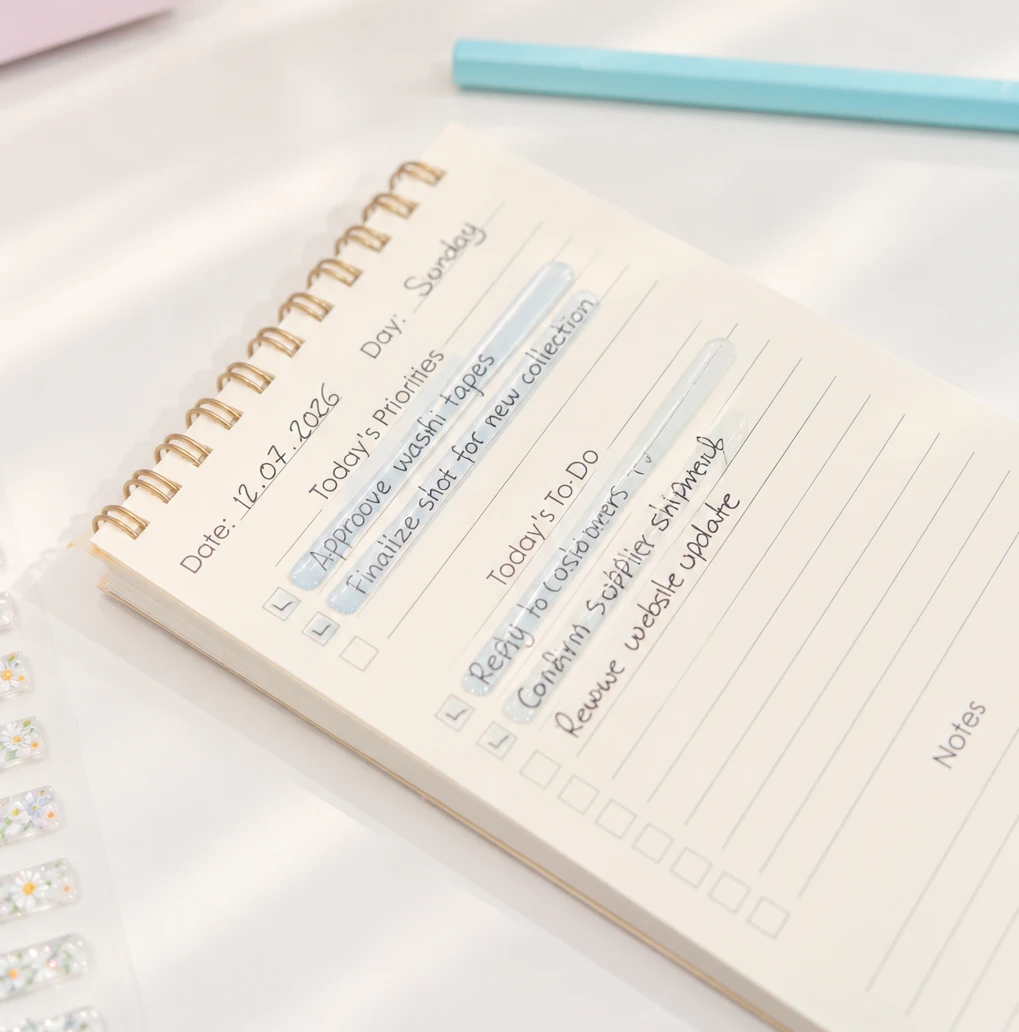 Date: 12.07.2026 Day: Sunday
Today's Priorities
Approove washi tapes
Finalize shot for new collection
Today's To-Do
Reply to
Confirm shipment
Rewowe website update
Notes